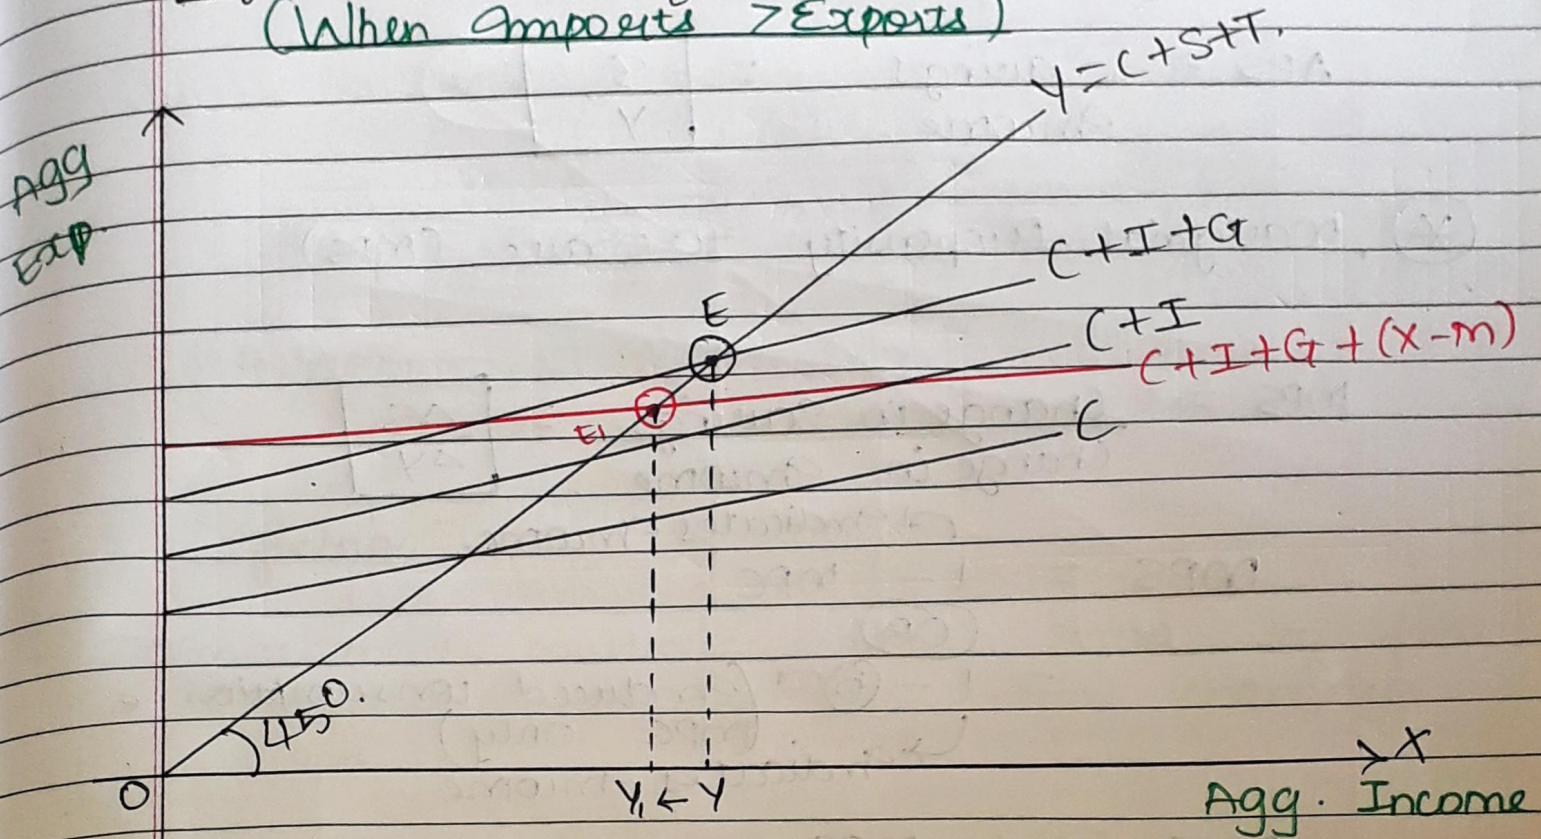 (When Imports > Exports)
Y = C+S+T.
Agg
Exp.
C+I+G
E
C+I
C+I+G+(X-M)
E1
C
45°.
X
O
Y1 ← Y
Agg. Income